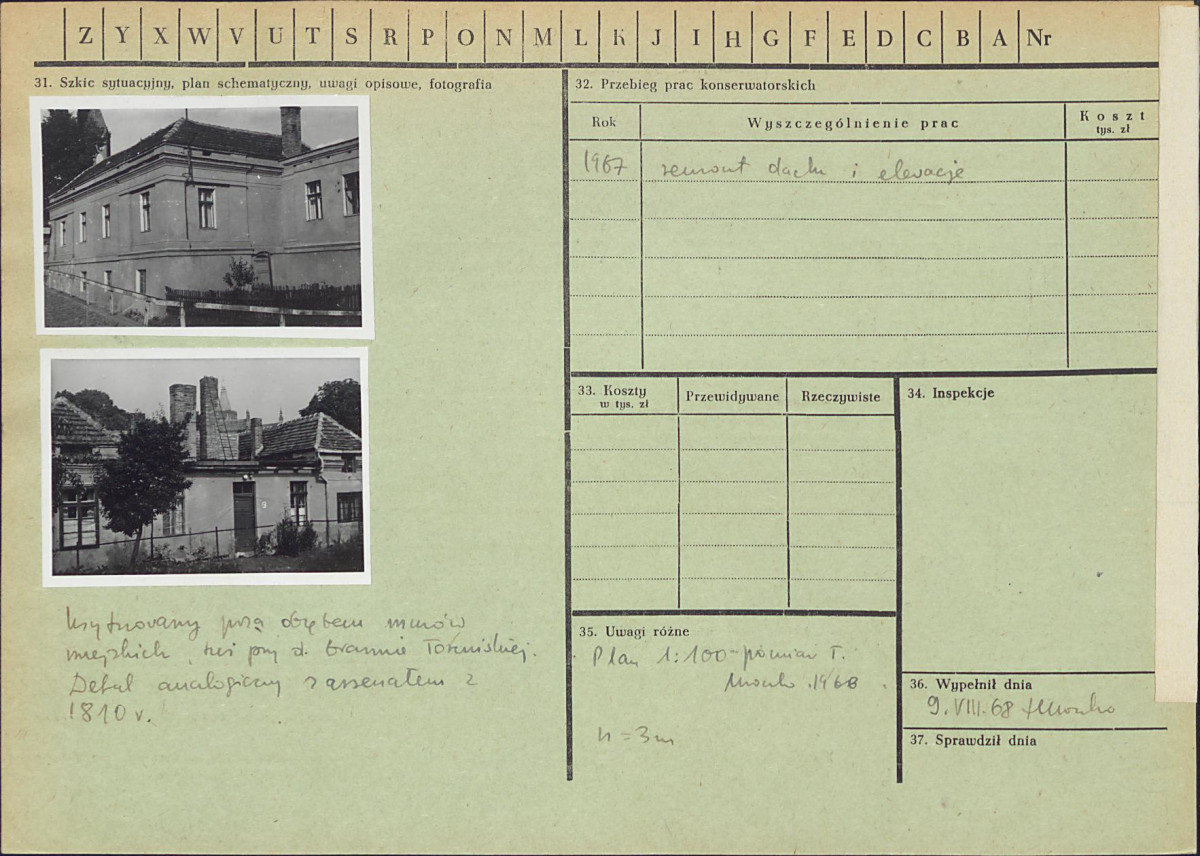 Z Y X W V U T S R P O N M L K J I H G F E D C B A Nr
31. Szkic sytuacyjny, plan schematyczny, uwagi opisowe, fotografia
Usytuowany poza obrębem murów
miejskich, tuż przy d. bramie Toruńskiej.
Detal analogiczny z arsenałem z
1810 r.
32. Przebieg prac konserwatorskich
Rok Wyszczególnienie prac Koszt
tys. zł
1967 remont dachu i elewacje
33. Koszty Przewidywane Rzeczywiste
w tys. zł
34. Inspekcje
35. Uwagi różne
Plan 1:100 - pomiar T.
1968
h = 3m
36. Wypełnił dnia
9. VIII. 68
37. Sprawdził dnia